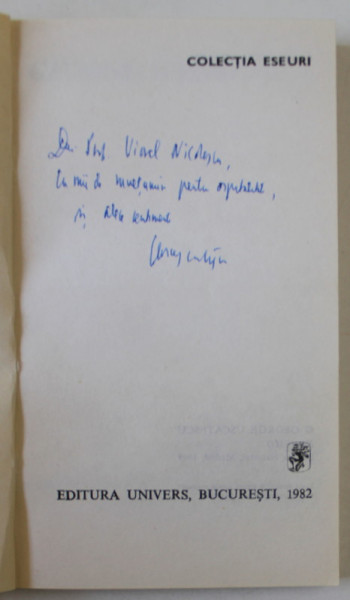 COLECȚIA ESEURI
Prof. Viorel Nicolescu,
cu mii de mulțumiri pentru ospitalitate,
și alese sentimente
EDITURA UNIVERS, BUCUREȘTI, 1982